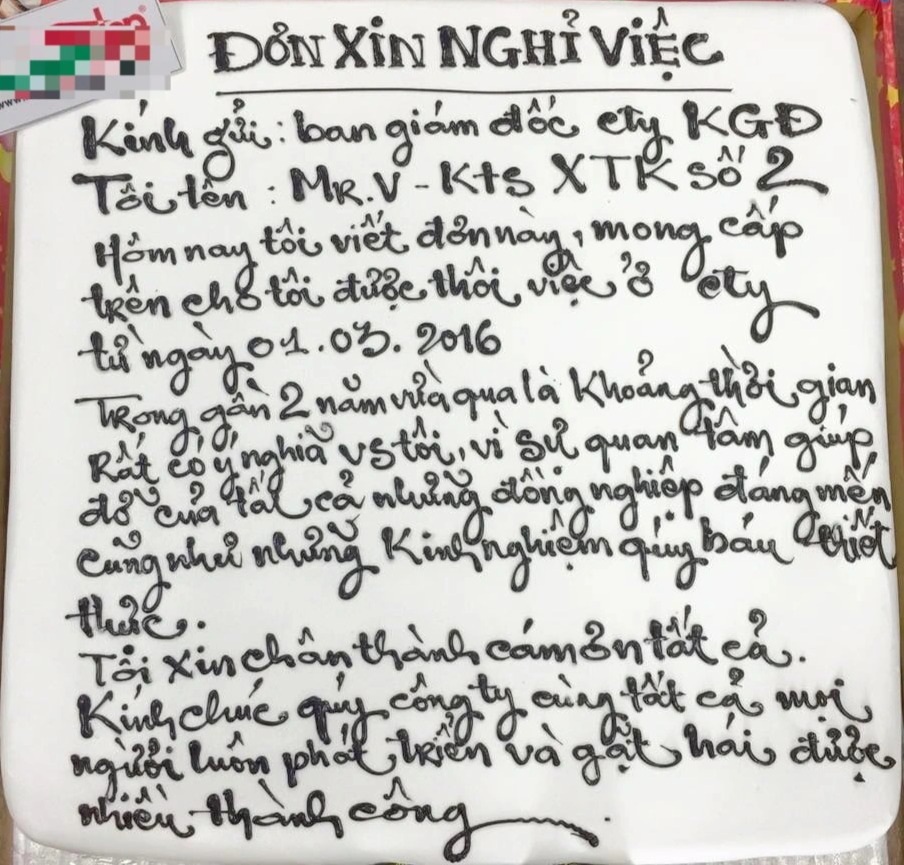 ĐƠN XIN NGHỈ VIỆC
Kính gửi: ban giám đốc cty KGĐ
Tôi tên : MR.V - Kts XTK số 2
Hôm nay tôi viết đơn này, mong cấp
trên cho tôi được thôi việc ở cty
từ ngày 01.03.2016
Trong gần 2 năm vừa qua là khoảng thời gian
Rất có ý nghĩa vs tôi, vì sự quan tâm giúp
đỡ của tất cả những đồng nghiệp đáng mến
cũng như những kinh nghiệm qúy báu thiết
thực.
Tôi xin chân thành cám ơn tất cả.
Kính chúc qúy công ty cùng tất cả mọi
người luôn phát triển và gặt hái được
nhiều thành công